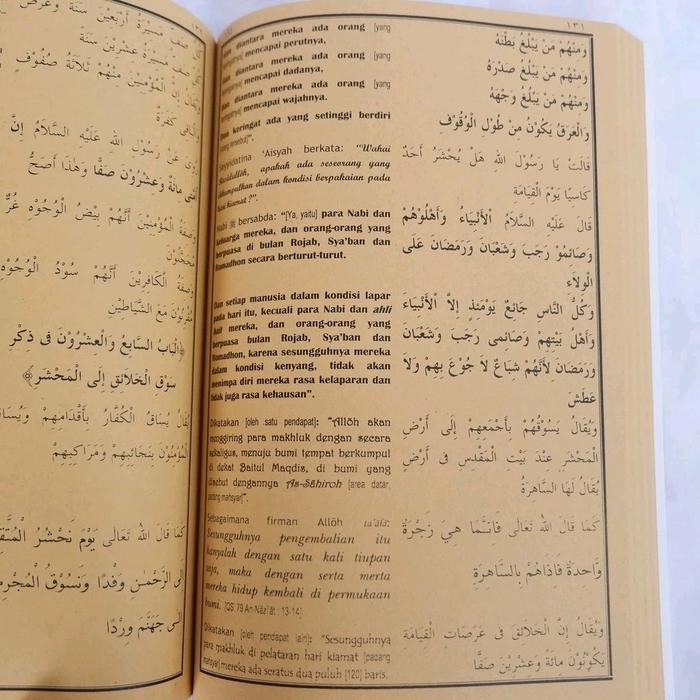 ١٣١
dan diantara mereka ada orang [yang
mencapai perutnya,
dan diantara mereka ada orang [yang
mencapai dadanya,
dan diantara mereka ada orang [yang
mencapai wajahnya.
Dan keringat ada yang setinggi berdiri
[orang tersebut]".
Sayyidatina 'Aisyah berkata: "Wahai
Rasulullah, apakah ada seseorang yang
dikumpulkan dalam kondisi berpakaian pada
hari kiamat?".
Nabi ﷺ bersabda: "[Ya, yaitu] para Nabi dan
keluarga mereka, dan orang-orang yang
berpuasa di bulan Rojab, Sya'ban dan
Romadhon secara berturut-turut.
Dan setiap manusia dalam kondisi lapar
pada hari itu, kecuali para Nabi dan ahli
bait mereka, dan orang-orang yang
berpuasa bulan Rojab, Sya'ban dan
Romadhon, karena sesungguhnya mereka
dalam kondisi kenyang, tidak akan
menimpa diri mereka rasa kelaparan dan
tidak juga rasa kehausan".
Dikatakan [oleh satu pendapat]: "Allōh akan
menggiring para makhluk dengan secara
sekaligus, menuju bumi tempat berkumpul
di dekat Baitul Maqdis, di bumi yang
disebut dengannya As-Sāhiroh [area datar,
padang mahsyar]".
Sebagaimana firman Allōh ta'ālā:
Sesungguhnya pengembalian itu
hanyalah dengan satu kali tiupan
saja, maka dengan serta merta
mereka hidup kembali di permukaan
bumi. [QS 79 An-Nāzi'āt : 13-14]
Dikatakan [oleh pendapat lain]: "Sesungguhnya
para makhluk di pelataran hari kiamat [padang
mahsyar] mereka ada seratus dua puluh [120] baris.
وَمِنْهُمْ مَنْ يَبْلُغُ بَطْنَهُ
وَمِنْهُمْ مَنْ يَبْلُغُ صَدْرَهُ
وَمِنْهُمْ مَنْ يَبْلُغُ وَجْهَهُ
وَالْعَرَقُ يَكُوْنُ مِنْ طُوْلِ الْوُقُوْفِ
قَالَتْ يَا رَسُوْلَ اللهِ هَلْ يُحْشَرُ أَحَدٌ
كَاسِيًا يَوْمَ الْقِيَامَةِ
قَالَ عَلَيْهِ السَّلَامُ اَلْأَنْبِيَاءُ وَأَهْلُوْهُمْ
وَصَائِمُوْ رَجَبَ وَشَعْبَانَ وَرَمَضَانَ عَلَى
الْوِلَاءِ
وَكُلُّ النَّاسِ جَائِعٌ يَوْمَئِذٍ إِلَّا الْأَنْبِيَاءَ
وَأَهْلَ بَيْتِهِمْ وَصَائِمِى رَجَبَ وَشَعْبَانَ
وَرَمَضَانَ لِأَنَّهُمْ شِبَاعٌ لَا جُوْعَ بِهِمْ وَلَا
عَطَشَ
وَيُقَالُ يَسُوْقُهُمْ بِأَجْمَعِهِمْ إِلَى أَرْضِ
الْمَحْشَرِ عِنْدَ بَيْتِ الْمَقْدِسِ فِى أَرْضٍ
يُقَالُ لَهَا السَّاهِرَةُ
كَمَا قَالَ اللهُ تَعَالَى فَإِنَّمَا هِيَ زَجْرَةٌ
وَاحِدَةٌ فَإِذَاهُمْ بِالسَّاهِرَةِ
وَيُقَالُ إِنَّ الْخَلَائِقَ فِى عَرَصَاتِ الْقِيَامَةِ
يَكُوْنُوْنَ مِائَةً وَعِشْرِيْنَ صَفًّا
صَفٍّ مَسِيْرَةُ أَرْبَعِيْنَ سَنَةً وَعَرْضُ
صَفٍّ مَسِيْرَةُ عِشْرِيْنَ سَنَةً
يُقَالُ إِنَّ الْمُؤْمِنِيْنَ مِنْهُمْ ثَلَاثَةُ صُفُوْفٍ
وَالْبَاقِى كَفَرَةٌ
رُوِىَ عَنْ رَسُوْلِ اللهِ عَلَيْهِ السَّلَامُ إِنَّ
أُمَّتِى مِائَةٌ وَعِشْرُوْنَ صَفًّا وَهٰذَا أَصَحُّ
وَصِفَةُ الْمُؤْمِنِيْنَ أَنَّهُمْ بِيْضُ الْوُجُوْهِ غُرٌّ
مُحَجَّلُوْنَ
وَصِفَةُ الْكَافِرِيْنَ أَنَّهُمْ سُوْدُ الْوُجُوْهِ
مُقْرَنُوْنَ مَعَ الشَّيَاطِيْنِ
﴿اَلْبَابُ السَّابِعُ وَالْعِشْرُوْنَ فِى ذِكْرِ
سَوْقِ الْخَلَائِقِ إِلَى الْمَحْشَرِ﴾
يُقَالُ يُسَاقُ الْكُفَّارُ بِأَقْدَامِهِمْ وَيُسَاقُ
الْمُؤْمِنُوْنَ بِنَجَائِبِهِمْ وَمَرَاكِبِهِمْ
كَمَا قَالَ اللهُ تَعَالَى يَوْمَ نَحْشُرُ
إِلَى الرَّحْمٰنِ وَفْدًا وَنَسُوْقُ
إِلَى جَهَنَّمَ وِرْدًا